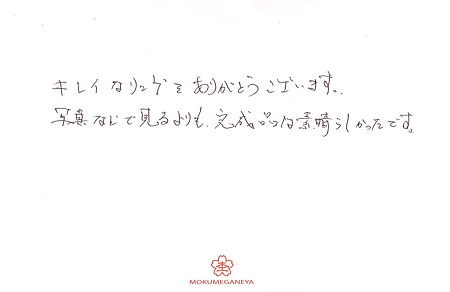 キレイなリングをありがとうございます。
写真などで見るよりも、完成品は素晴らしかったです。
MOKUMEGANEYA